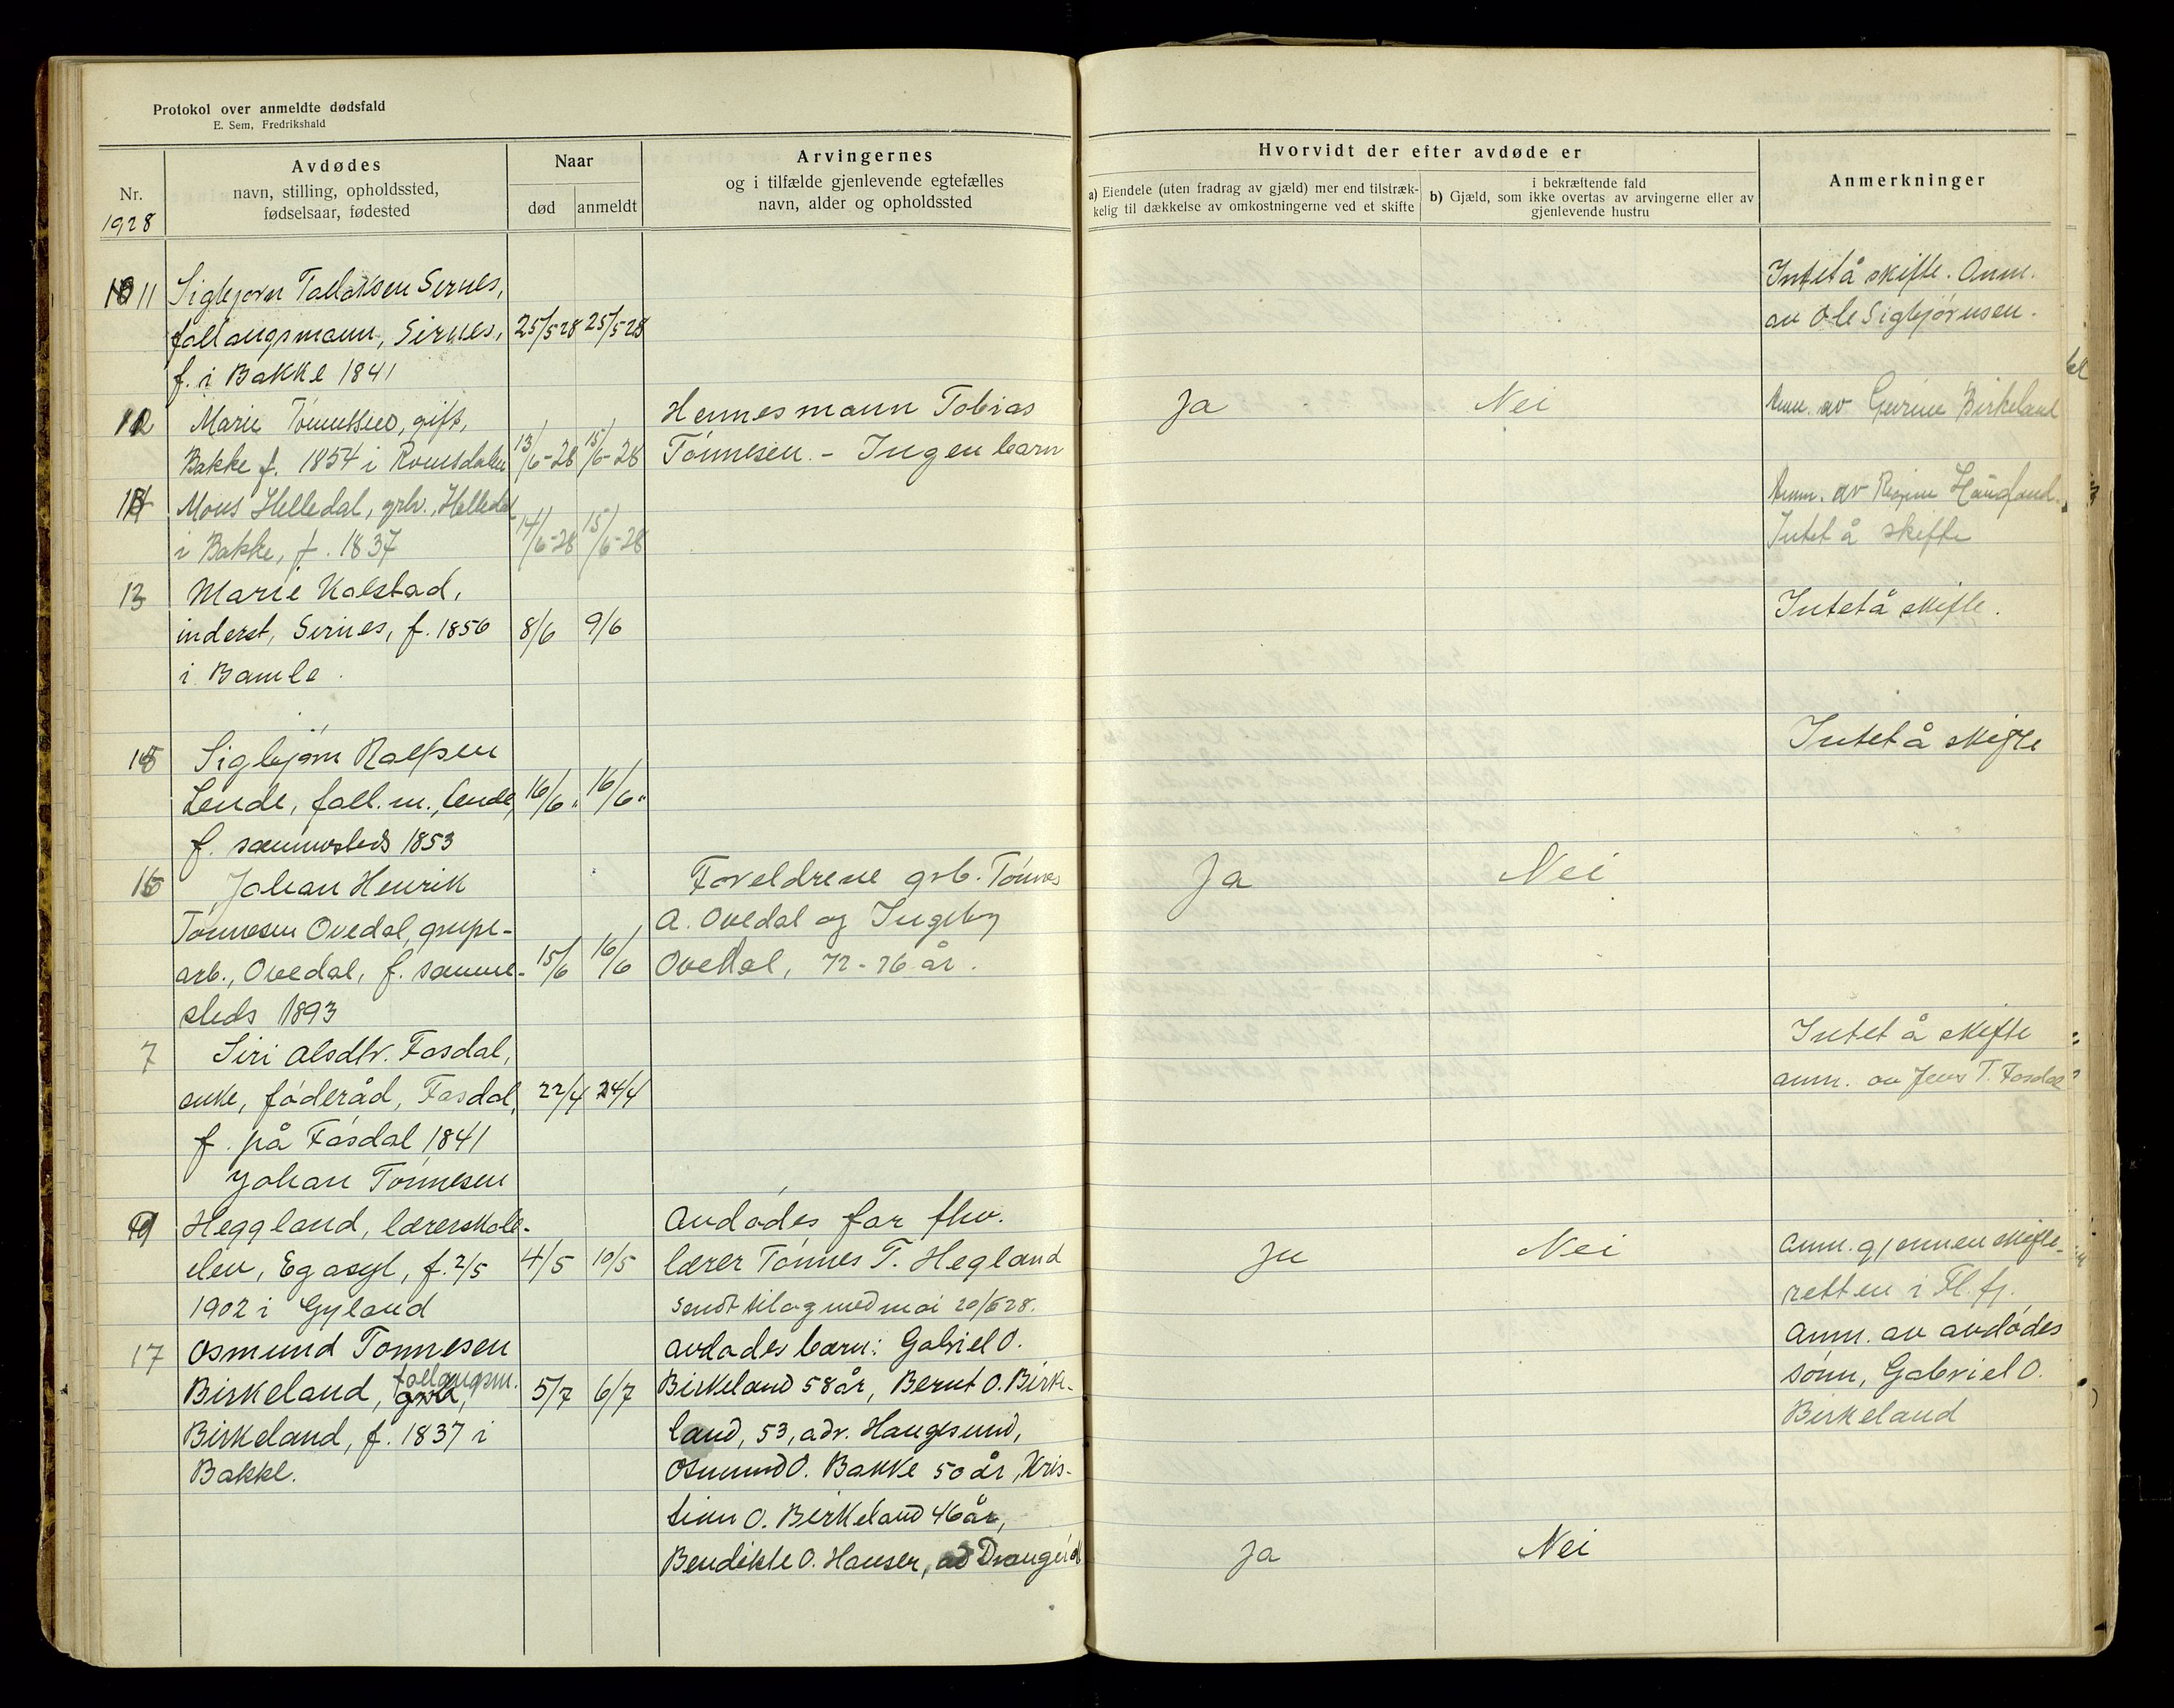 Protokol over anmeldte dødsfald
E. Sem, Fredrikshald
Nr.
1928
Avdødes
navn, stilling, opholdssted,
fødselsaar, fødested
Naar
død
anmeldt
Arvingernes
og i tilfælde gjenlevende egtefælles
navn, alder og opholdssted
Hvorvidt der efter avdøde er
a) Eiendele (uten fradrag av gjæld) mer end tilstræk-
kelig til dækkelse av omkostningerne ved et skifte
i bekræftende fald
b) Gjæld, som ikke overtas av arvingerne eller av
gjenlevende hustru
Anmerkninger
11 Sigbjørn Tollaksen Sernes,
follaugsmann, Sirnes, 25/5 28 25/5 28
f. i Bakke 1841
Intet å skifte. Anm.
av Ole Sigbjørnsen.
12 Marie Tønnessen, gift,
Bakke f. 1854 i Romsdalen 13/6-28 15/6-28
Hennes mann Tobias
Tønnesen. - Ingen barn
Ja
Nei
Anm. av Gurine Birkeland
14 Mons Helledal, grbr., Helledal
i Bakke, f. 1837 14/6-28 15/6-28
Anm. av Regine Haugland.
Intet å skifte
13 Marie Kalstad,
inderst, Sirnes, f. 1856 8/6 9/6
i Bamle.
Intet å skifte.
15 Sigbjørn Rolfsen
Lende, foll.m., Lende, 16/6 " 16/6 "
f. sammesteds 1853
Intet å skifte
16 Johan Henrik
Tønnesen Ovedal, grupe-
arb., Ovedal, f. samme- 15/6 16/6
steds 1893
Foreldrene grb. Tønnes
A. Ovedal og Ingeby
Ovedal, 72-76 år.
Ja
Nei
7 Siri Alsdtr. Fosdal,
enke, føderåd, Fosdal, 22/4 24/4
f. på Fosdal 1841
Intet å skifte
anm. av Jens T. Fosdal
Johan Tønnesen
9 Heggland, lærerskole-
elev, Eg asyl, f. 2/5 4/5 10/5
1902 i Gyland
Avdødes far fhv.
lærer Tønnes T. Hegland
Ja
Nei
Anm. gjennem skifte-
retten i Fl.fj.
17 Osmund Tønnesen
Birkeland, follaugsm. 5/7 6/7
Birkeland, f. 1837 i
Bakke.
avdødes barn: Gabriel O.
Birkeland 58 år, Bernt O. Birke-
land, 53, adr. Haugesund,
Osmund O. Bakke 50 år, Kris-
tinn O. Birkeland 46 år,
Bendikte O. Hansen, ad Drangeid
Ja
Nei
Anm. av avdødes
sønn, Gabriel O.
Birkeland